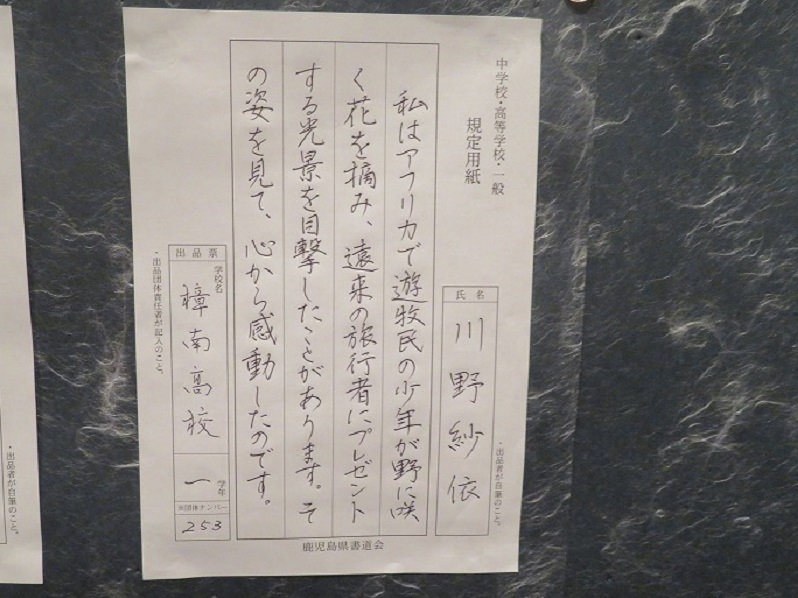 中学校・高等学校・一般
規定用紙
氏名
川野紗依
・出品者が自筆のこと。
私はアフリカで遊牧民の少年が野に咲
く花を摘み、遠来の旅行者にプレゼント
する光景を目撃したことがあります。そ
の姿を見て、心から感動したのです。
出品票
学校名
樟南高校
学年
一
※団体ナンバー
253
・出品団体責任者が記入のこと。
鹿児島県書道会
・出品者が自筆のこと。